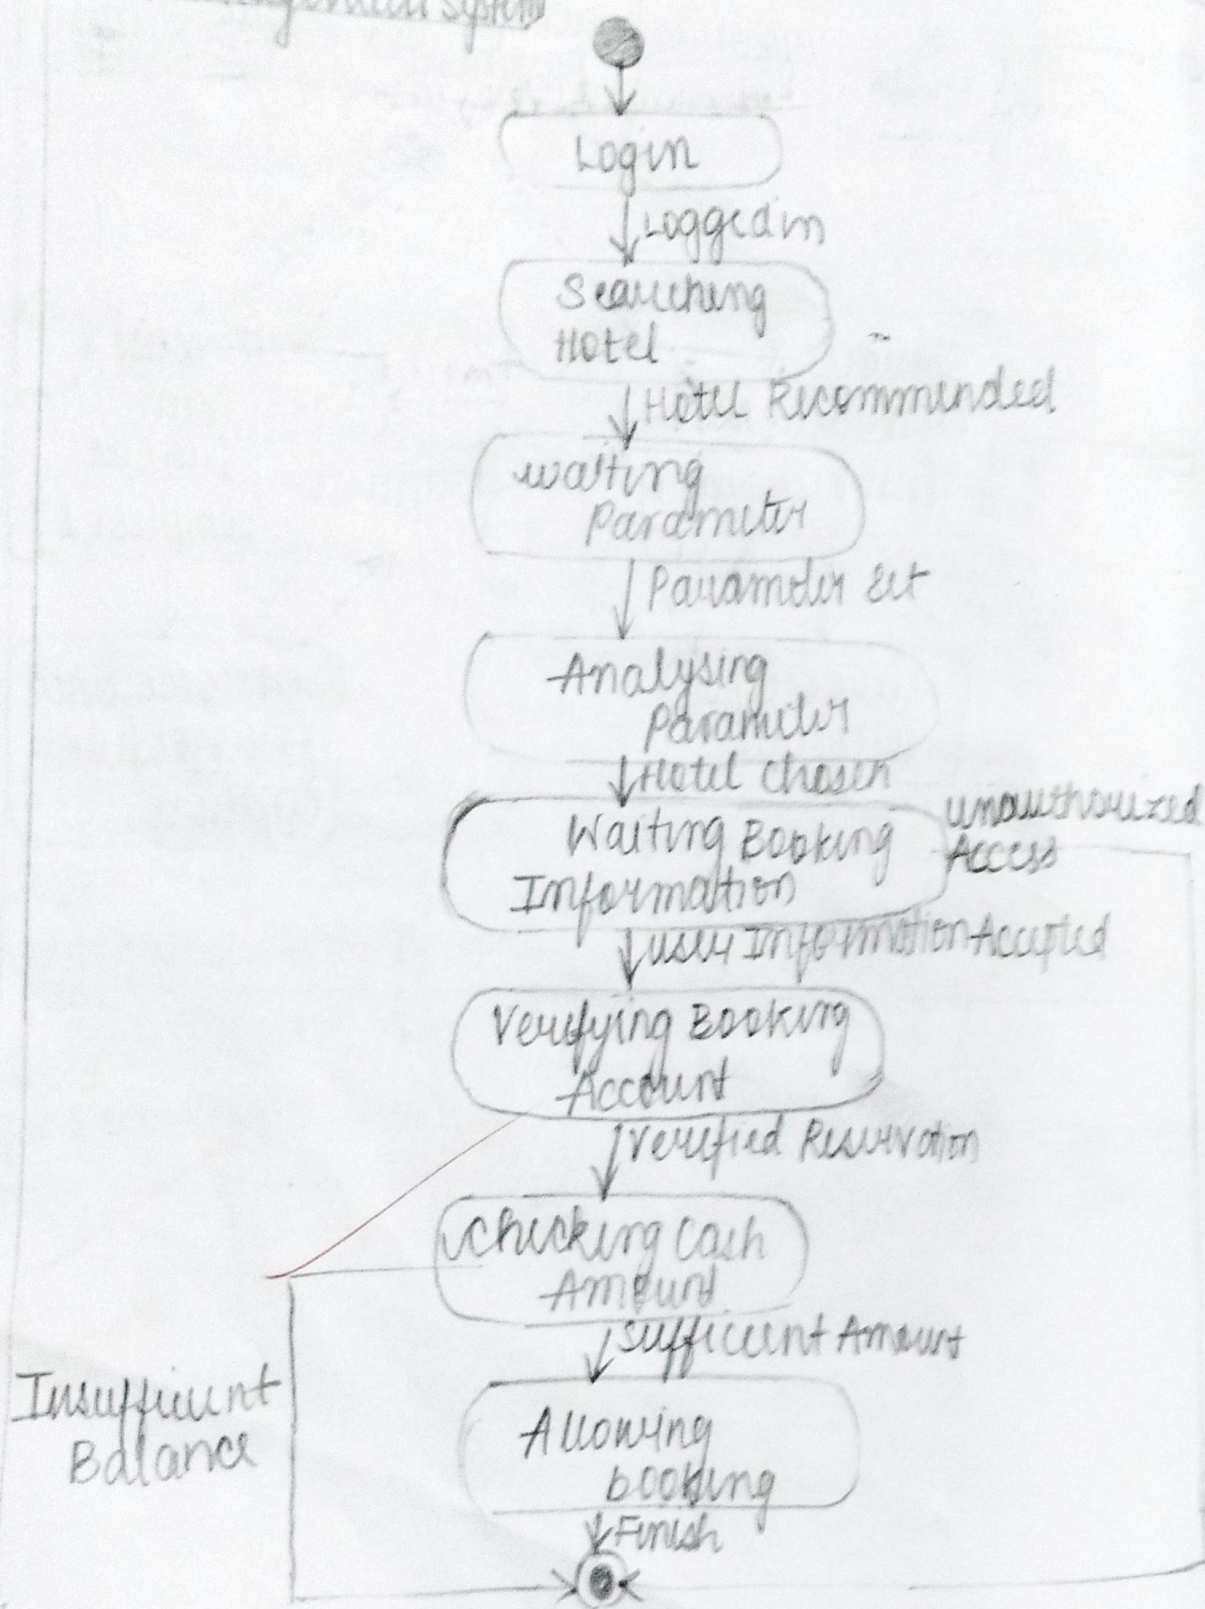 System
Login
Logged in
Searching
Hotel
Hotel Recommended
Waiting
Parameter
Parameter Set
Analysing
Parameter
Hotel Chosen
Waiting Booking
Information
Unauthorized
Access
User Information Accepted
Verifying Booking
Account
Verified Reservation
Checking Cash
Amount
Sufficient Amount
Insufficient
Balance
Allowing
booking
Finish